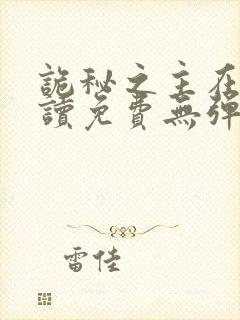 詭秘之主在
讀免費無彈
雷佳